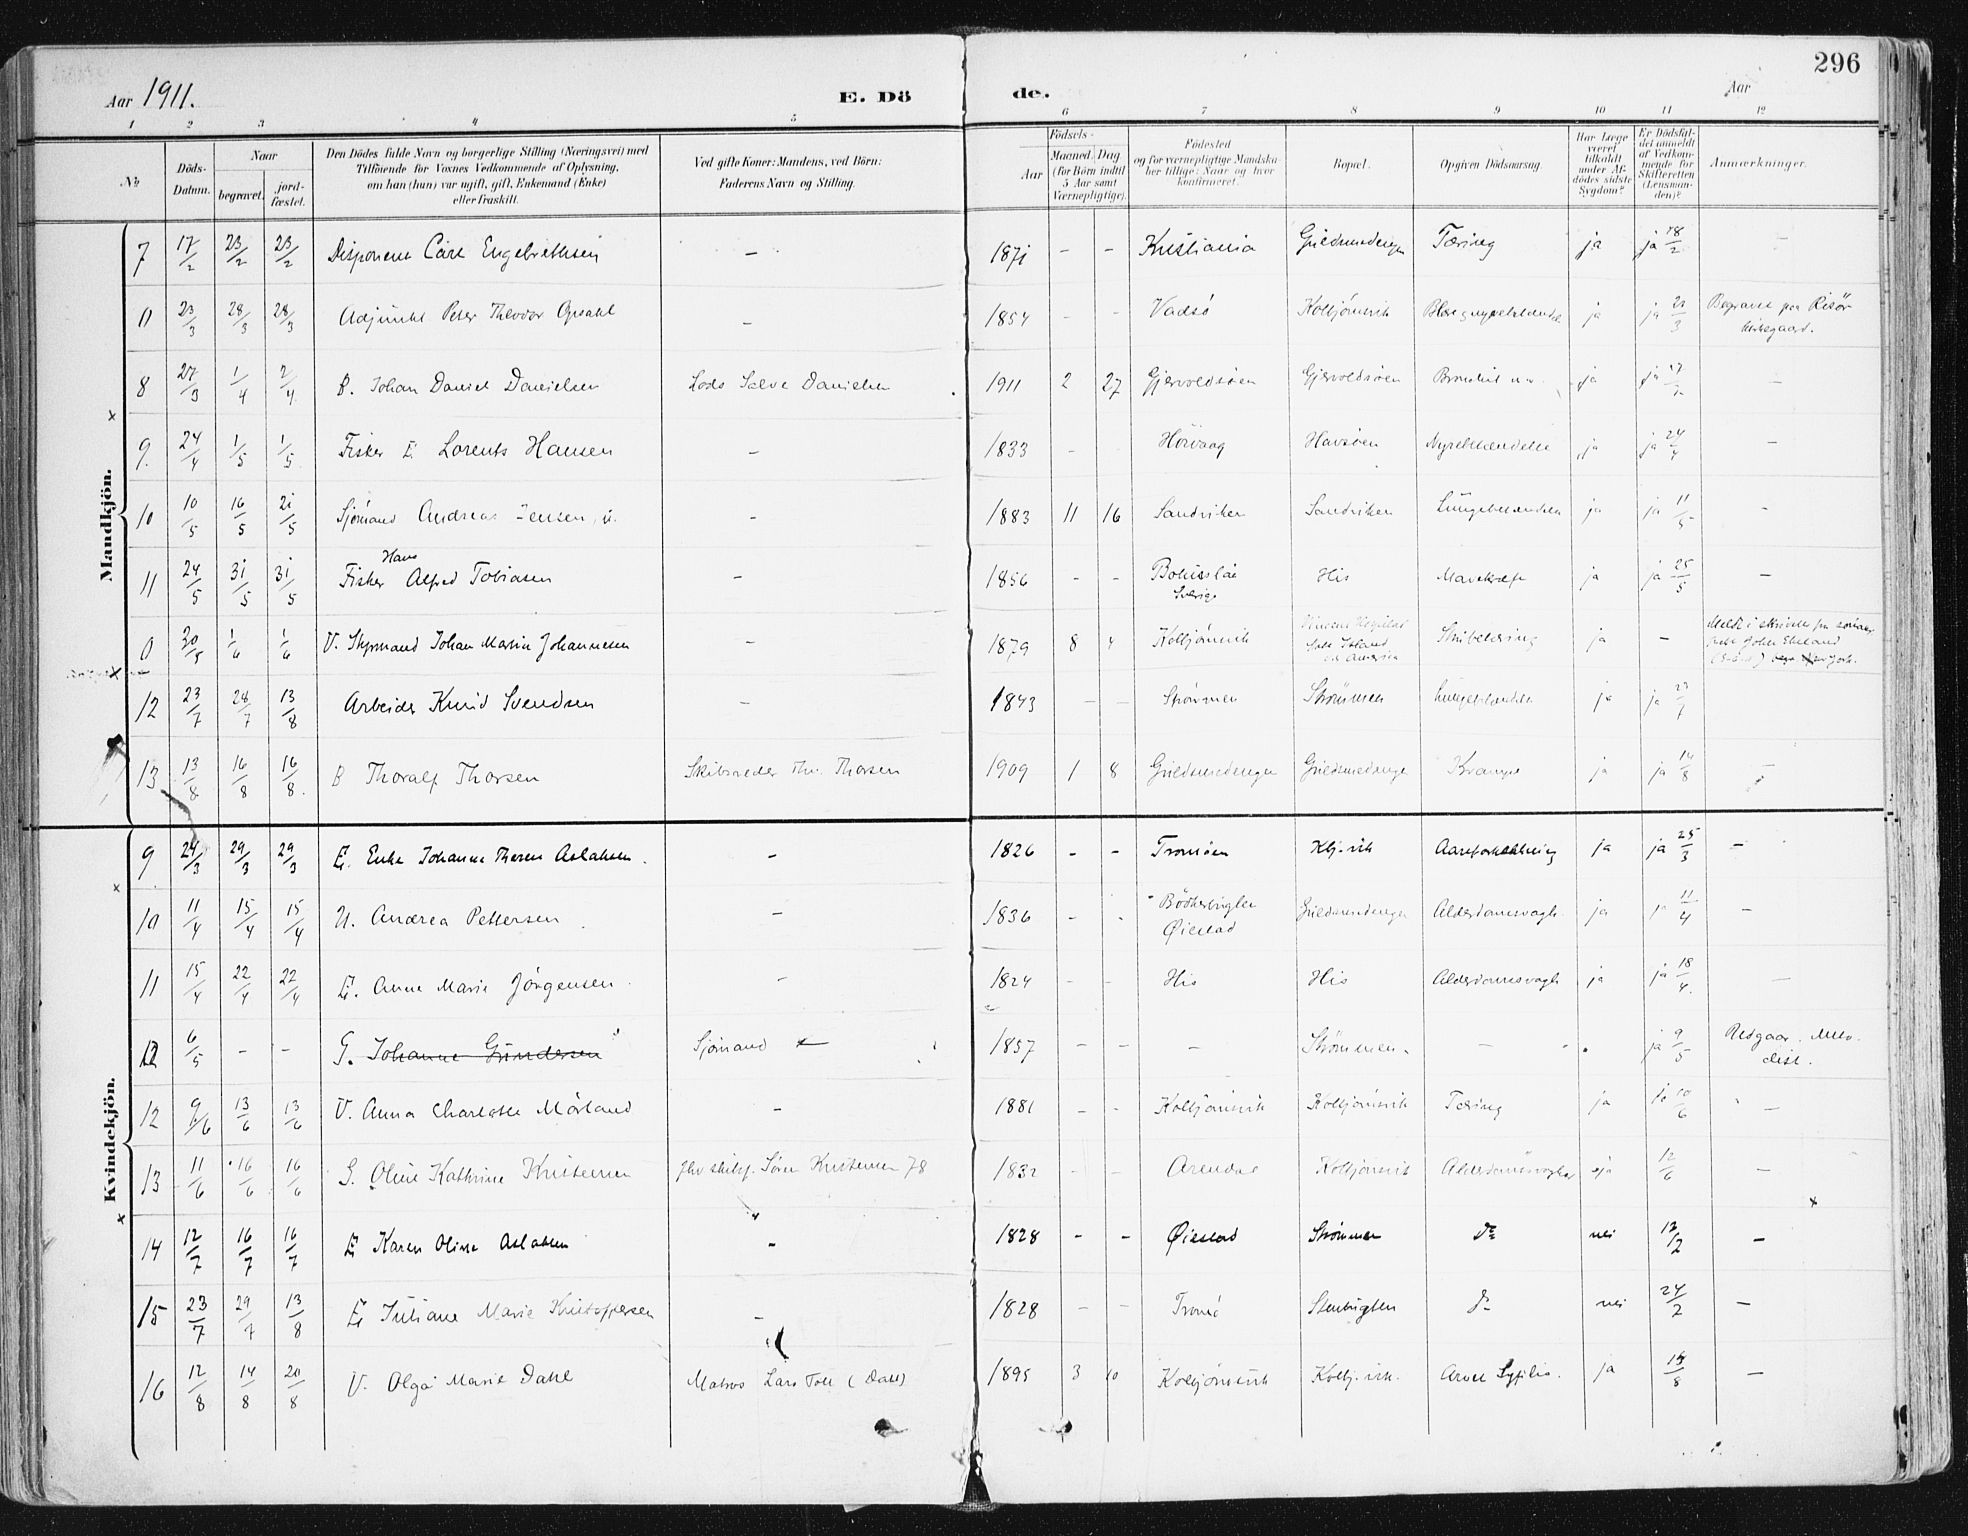 296
Aar 1911. E. Dö de. Aar
1 2 3 4 5 6 7 8 9 10 11 12
№
Döds-Datum.
Naar
begravet.
jord-fæstet.
Den Dödes fulde Navn og borgerlige Stilling (Næringsvei) med
Tilföiende for Voxnes Vedkommende af Oplysning,
om han (hun) var ugift, gift, Enkemand (Enke)
eller fraskilt.
Ved gifte Koner: Mandens, ved Börn:
Faderens Navn og Stilling.
Födsels-
Aar
Maaned. Dag
(for Börn indtil
5 Aar samt
Værnepligtige).
Födested
og for værnepligtige Mandska-
ber tillige: Naar og hvor
konfirmeret.
Bopæl.
Opgiven Dödsaarsag.
Har Læge
været
tilkaldt
under Af-
dödes sidste
Sygdom?
Er Dödsfal-
det anmeldt
af Vedkom-
mende for
Skifteretten
(Lensman-
den)?
Anmærkninger.
Mandkjön.
7 17/2 23/2 23/2 Disponent Carl Engebrethsen — 1871 - - Kristiania Tæring ja ja 18/2 —
0 23/3 28/3 28/3 Adjunkt Peter Theodor Opsahl — 1854 - - Vadsö Kolbjörnsvik ja ja 23/3 Begravet paa Risör
Kirkegaard.
8 27/3 1/4 2/4 B. Johan Daniel Danielsen Lods Salve Danielsen 1911 2 27 Gjervoldsöen Gjervoldsöen ja ja —
9. 24/4 1/5 1/5 Fisker E. Lorents Hansen — 1833 - Hövaag Havsöen Nyrebetændelse ja ja 24/4 —
10 10/5 16/5 21/5 Sjömand Andreas Jensen, u. — 1883 11 16 Sandviken Sandviken Lungebetændelse ja ja 11/5 -
11 24/5 31/5 31/5 Fisker Hans Alfred Tobiasen — 1856 - - His Mavekræft ja ja 25/5 —
Sverige
0 30/5 1/6 1/6 U. Styrmand Johan Martin Johannesen — 1879 8 4 Kolbjörnsvik ja —
12 23/7 28/7 13/8 Arbeider Knud Svendsen — 1843 — — Strömmen Strömmen Lungebetændelse ja ja 23/7
13 13/8 16/8 16/8. B Thoralf Thorsen Skibsreder Thv. Thorsen 1909 1 8 Krampe ja ja 14/8 —
Kvindekjön.
9 24/3 29/3 29/3 E. Enke Johanne Theresе Aslaksen. — 1826 - - Tromöen Kbj.vik Aareforkalkning ja ja 25/3 —
10 11/4 15/4 15/4 U. Andrea Pettersen — 1836 - - Øiestad Alderdomssvagh. ja 11/4 —
11 15/4 22/4 22/4 E. Anne Marie Jörgensen. - 1824 - - His His Alderdomssvagh ja ja 18/4. —
12 6/5 - - G. Johanne Gundersen Sjömand 1857 - - - Strömmen. - ja 9/5 Udgaar. Meto-
dist.
12 9/6 13/6 13/6 U. Anna Charlotte Mörland - 1881 - - Kolbjörnsvik Kolbjörnsvik Tæring ja 10/6 —
13 11/6 16/6 16/6 G. Oline Kathrine Kristensen Sören Kristensen 78 1832 - - Arendal Kolbjörnsvik Alderdomssvaghed ja 12/6 —
14 12/7 16/7 16/7 E Karen Oline Aslaksen - 1828 - - Øiestad Strömmen do nei —
15 23/7 29/7 13/8 E Juliane Marie Kristoffersen - 1828 - - Tromö do nei —
16 12/8 14/8 20/8 U. Olga Marie Dahl Matros Lars Toll (Dahl) 1895 3 10 Kolbjörnsvik Kolbj.vik. Arvel Syfilis. ja —